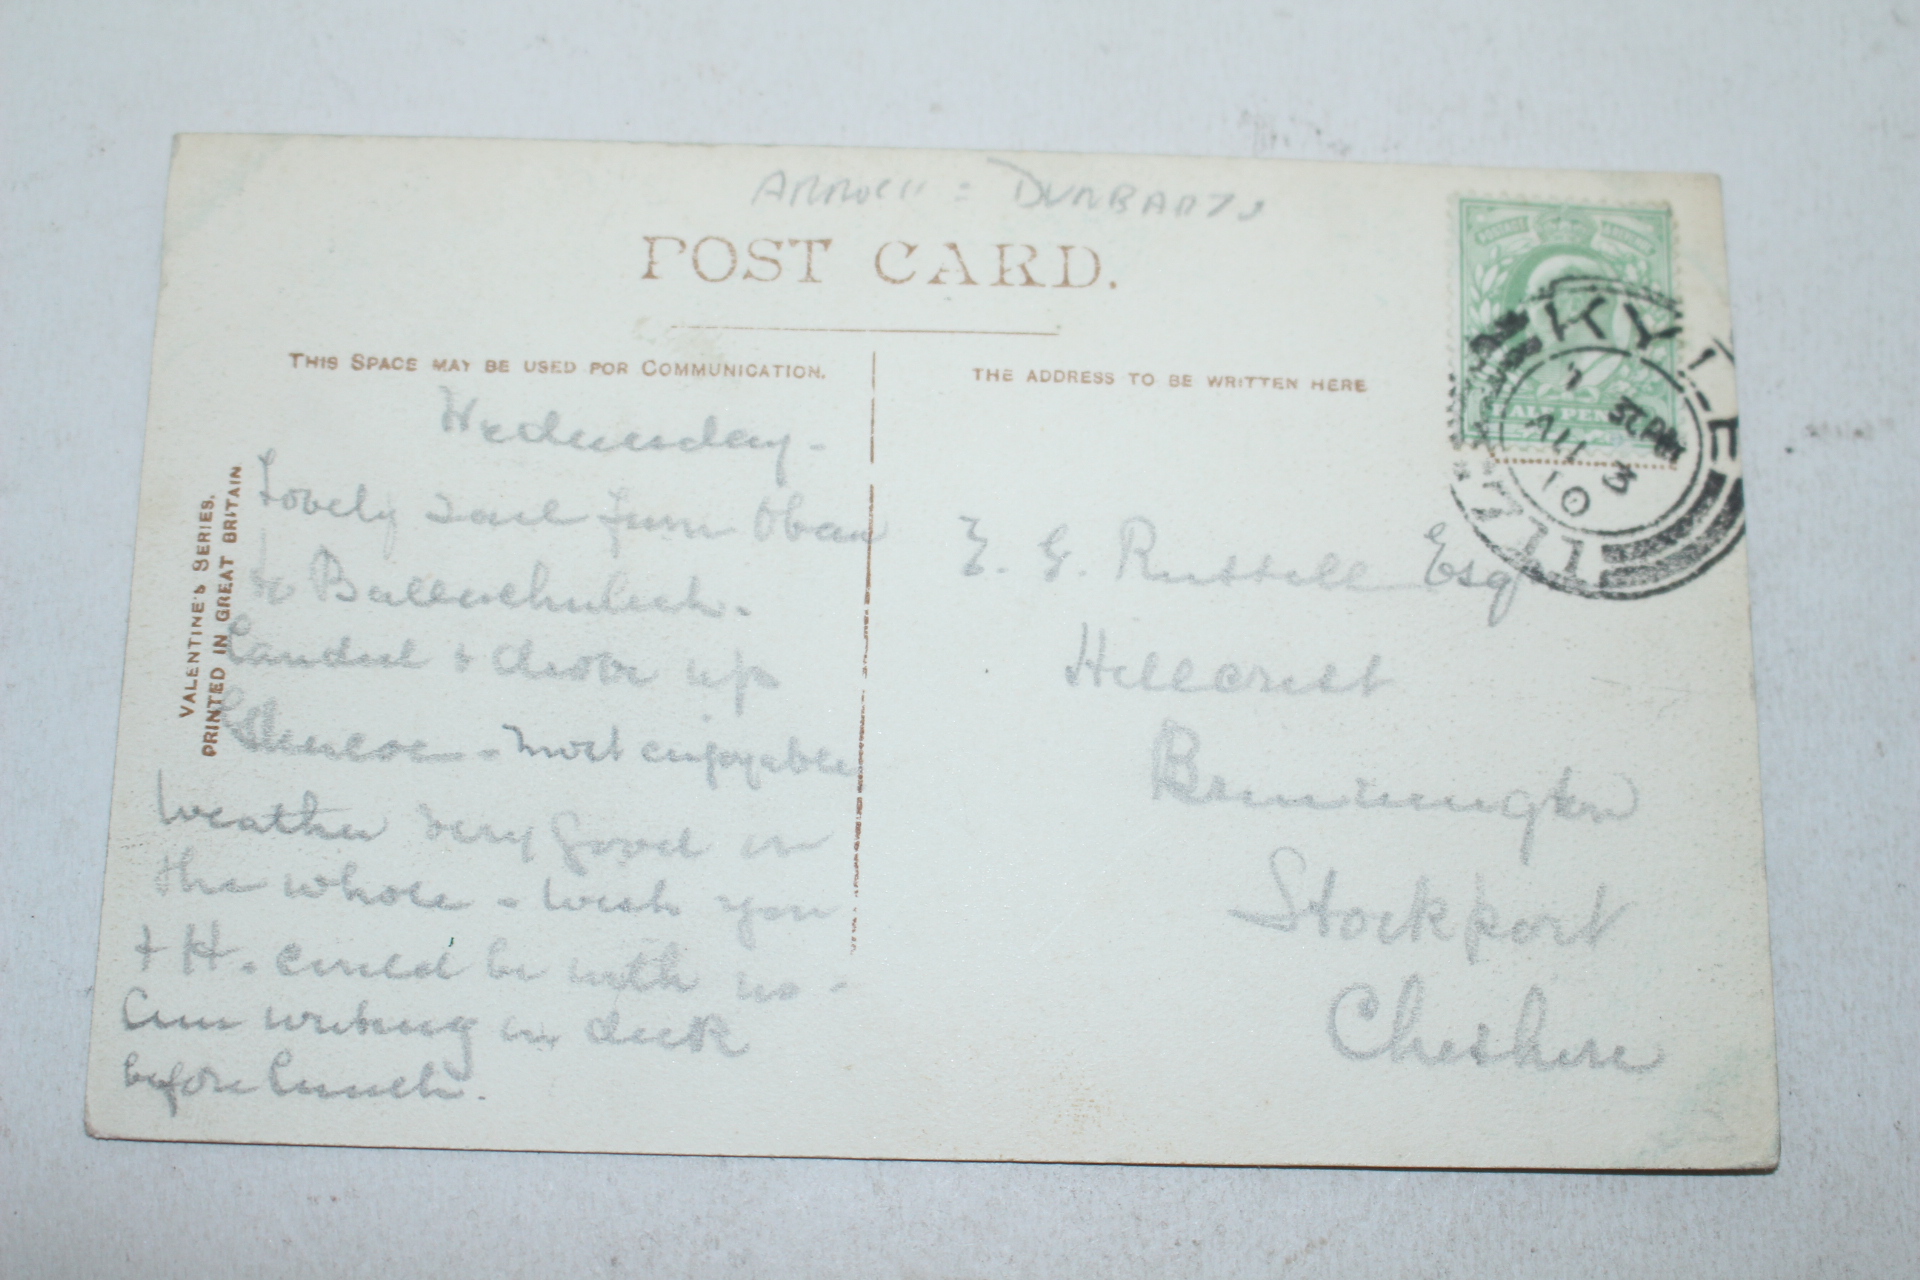 POST CARD.
THIS SPACE MAY BE USED FOR COMMUNICATION.
THE ADDRESS TO BE WRITTEN HERE
VALENTINE'S SERIES.
PRINTED IN GREAT BRITAIN
Wednesday -
Lovely sail from Oban
to Ballachulish.
Landed & drove up
Glencoe - most enjoyable
Weather very good on
the whole - Wish you
+ H. could be with us -
Am writing on deck
before lunch.
E. G. Russell Esq
Hillcrest
Brinnington
Stockport
Cheshire
HALF PEN
KYLE
3 PM
AU 3
10